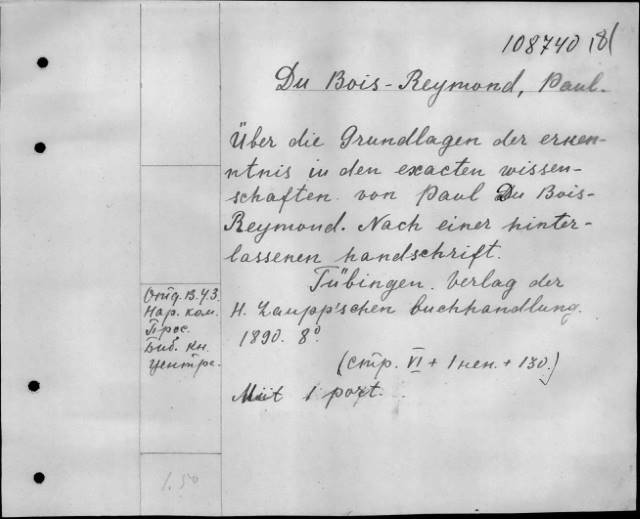 108740 181
Du Bois-Reymond, Paul.
Über die Grundlagen der erken-
ntnis in den exacten wissen-
schaften. von Paul Du Bois-
Reymond. Nach einer hinter-
lassenen handschrift.
Tübingen. Verlag der
H. Laupp'schen buchhandlung.
1890. 8°
(стр. VI + 1 нен. + 130.)
Mit 1 port.
Отд. В.УЗ.
Нар. ком.
Прос.
Биб. кн.
центра.
1.50